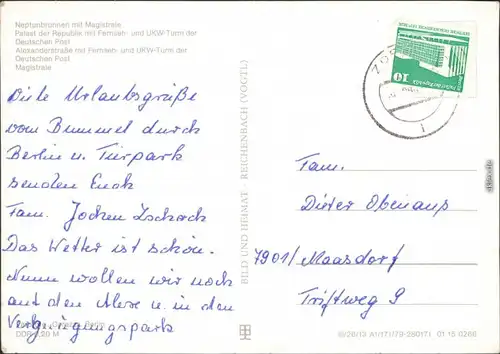 Neptunbrunnen mit Magistrale
Palast der Republik mit Fernseh- und UKW-Turm der
Deutschen Post
Alexanderstraße mit Fernseh- und UKW-Turm der
Deutschen Post
Magistrale
Viele Urlaubsgrüße
vom Bummel durch
Berlin u. Tierpark
senden Euch
Fam. Jochen Zschach
Das Wetter ist schön.
Nun wollen wir noch
auf den Alex u. in den
Vergnügungspark
DDR 0,20 M
BILD UND HEIMAT REICHENBACH (VOGTL)
10
Fam.
Dieter Obenaus
7901 Maasdorf
Triftweg 9
01 15 0266